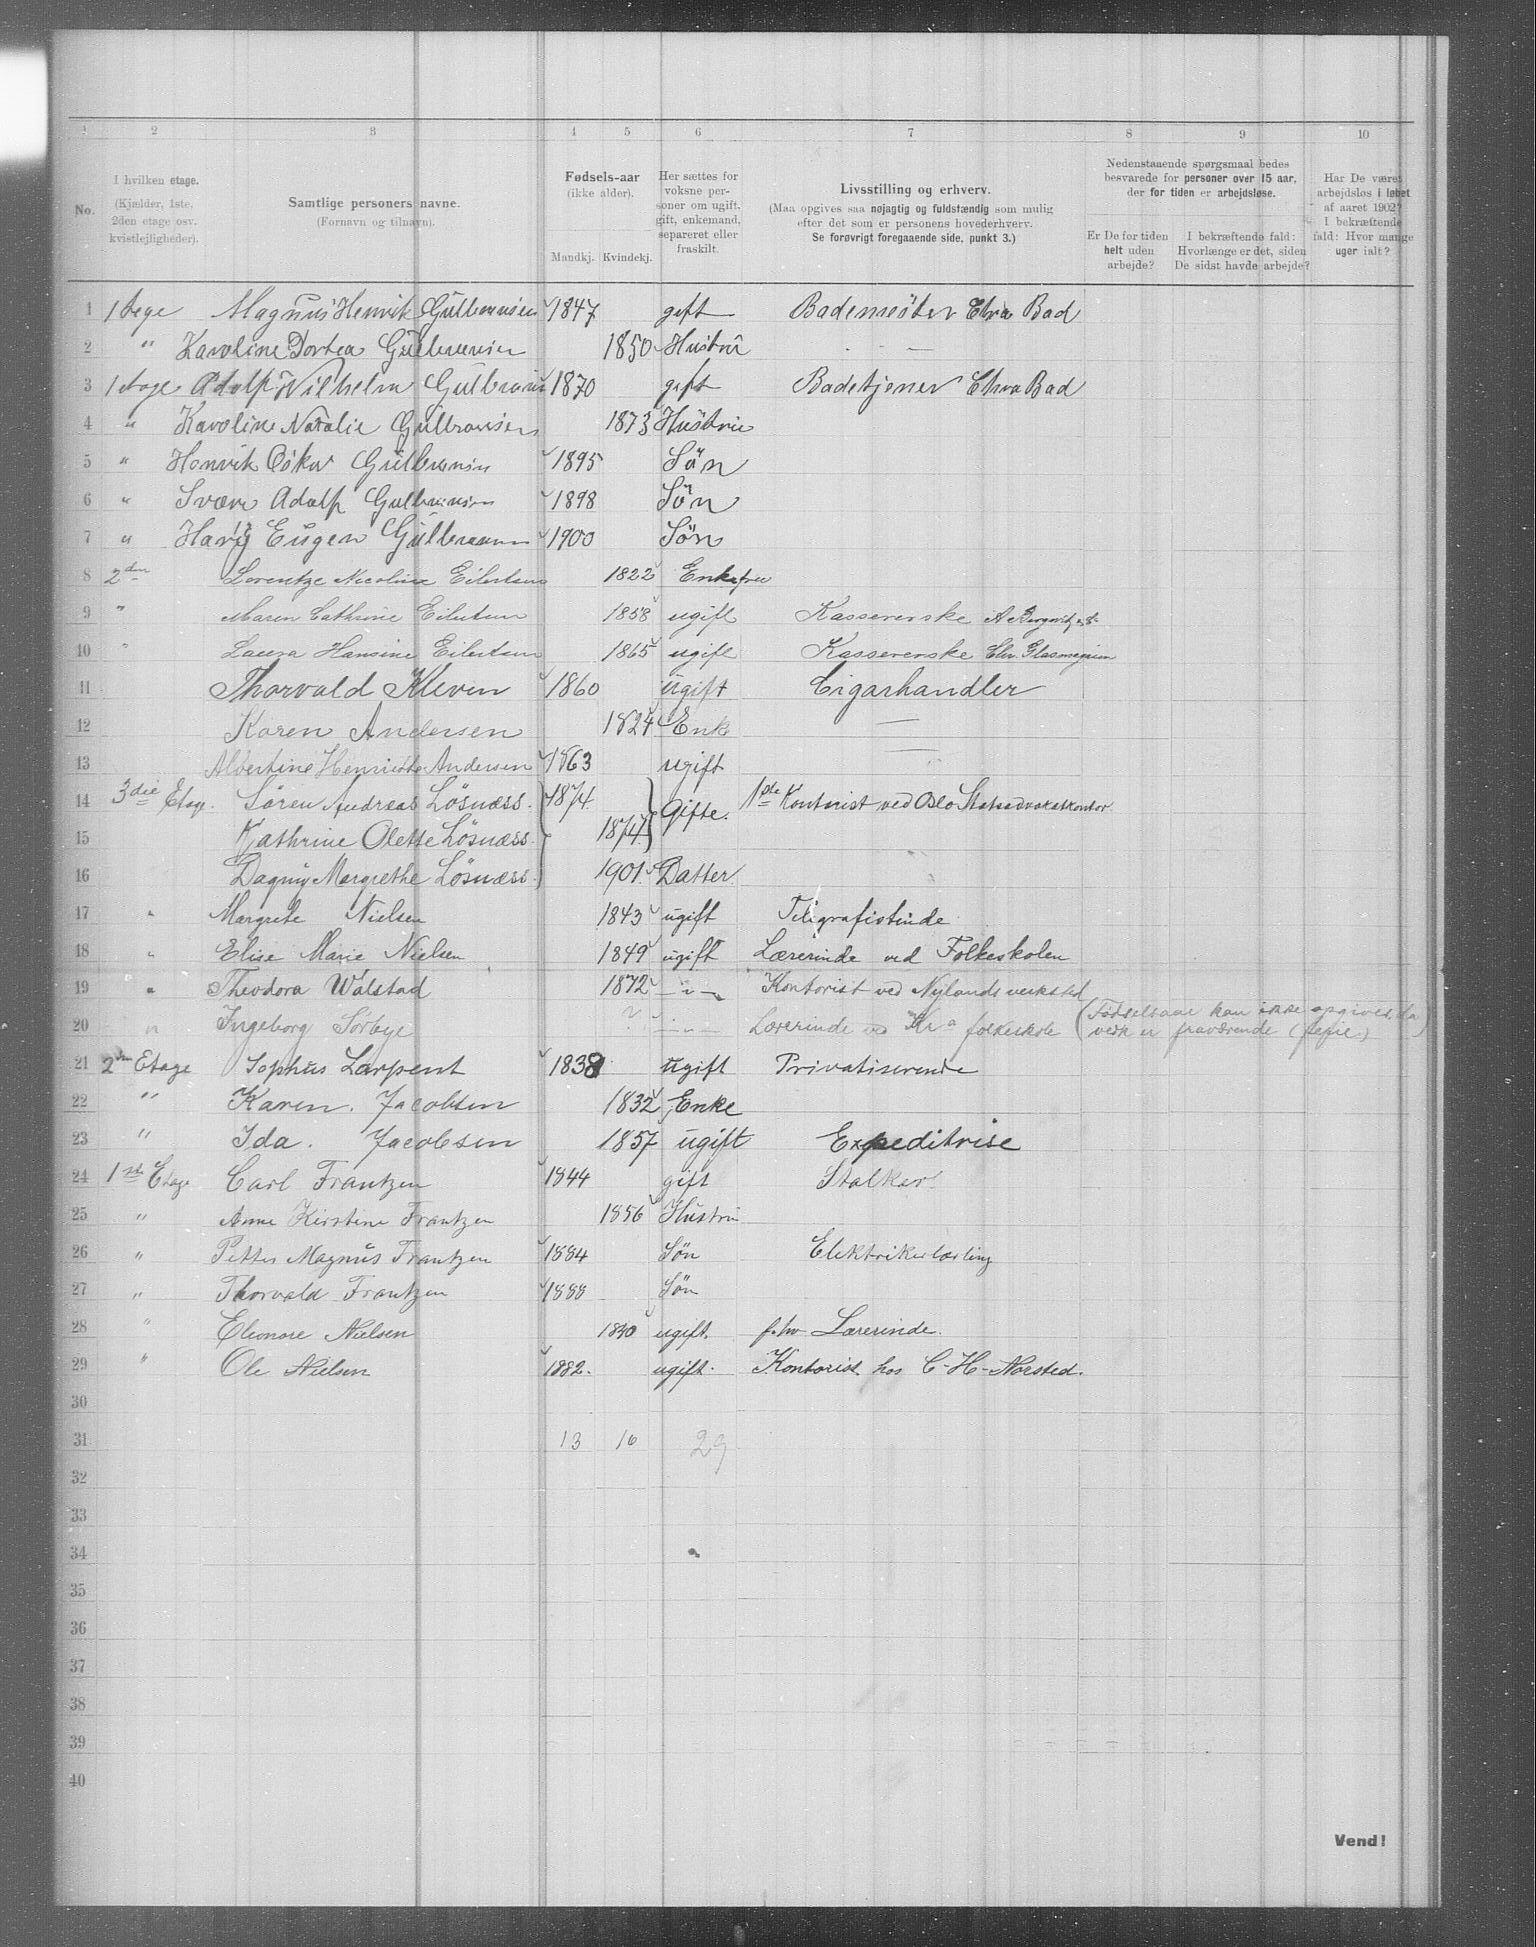 1 2 3 4 5 6 7 8 9 10
No.
I hvilken etage.
(Kjælder, 1ste,
2den etage osv.
kvistlejligheder).
Samtlige personers navne.
(Fornavn og tilnavn).
Fødsels-aar
(ikke alder).
Mandkj. Kvindekj.
Her sættes for
voksne per-
soner om ugift,
gift, enkemand,
separeret eller
fraskilt.
Livsstilling og erhverv.
(Maa opgives saa nøjagtig og fuldstændig som mulig
efter det som er personens hovederhverv.
Se forøvrigt foregaaende side, punkt 3.)
Nedenstaaende spørgsmaal bedes
besvarede for personer over 15 aar,
der for tiden er arbejdsløse.
Er De for tiden
helt uden
arbejde?
I bekræftende fald:
Hvorlænge er det, siden
De sidst havde arbejde?
Har De været
arbejdsløs i løbet
af aaret 1902?
I bekræftende
fald: Hvor mange
uger ialt?
1 1 Magnus Henrik Gulbransen 1847 gift Bademester Bad
2 " Karoline Dortea Gulbransen 1850 Hustru
3 1 Etage Adolf Wilhelm Gulbransen 1870 gift Badetjener Bad
4 " Karoline Natalie Gulbransen 1873 Hustrue
5 " Henrik Oskar Gulbransen 1895 Sön
6 " Svære Adolf Gulbransen 1898 Sön
7 " Harry Eugen Gulbransen 1900 Sön
8 2den Lorentze Nicoline Eilertsen 1822 Enkefru
9 " Maren Cathrine Eilertsen 1858 ugift Kassererske
10 " Laura Hansine Eilertsen 1865 ugift Kassererske Chr. Glasmagasin
11 Thorvald Kleven 1860 ugift Cigarhandler
12 Karen Andersen 1824 Enk —
13 Albertine Henriette Andersen 1863 ugift —
14 3die Etage. Sören Andreas Lösnæss. 1874. Gifte. 1ste Kontorist ved Oslo Statsadvokatkontor
15 Kathrine Olette Lösnæss. 1874.
16 Dagny Margrethe Lösnæss. 1901. Datter.
17 " Margrete Nielsen 1843 ugift Telegrafistinde
18 " Elise Marie Nielsen 1849 ugift Lærerinde ved Folkeskolen
19 " Theodora Walstad 1872 —"— Kontorist ved Nylands verksted
20 " Ingeborg Sørbye ? —"— Lærerinde ved Kr.a folkeskole (Fødselsaar kan ikke opgives, da
vedk er fraværende (ferie)
21 2den Etage Sophus Larpent 1838 ugift Privatiserende
22 " Karen. Jacobsen 1832 Enke
23 " Ida. Jacobsen 1857 ugift Expeditrise
24 1st Etage Carl Frantzen 1844 gift Stalkar.
25 " Anne Kirstine Frantzen 1856 Hustru
26 " Petter Magnus Frantzen 1884 Søn Elektrikerlærling
27 " Thorvald Frantzen 1888 Søn
28 " Eleonore Nielsen 1840 ugift. f. hv Lærerinde.
29 " Ole Nielsen 1882. ugift. Kontorist hos C-H-Norsted.
30
31 13 16 29
32
33
34
35
36
37
38
39
40
Vend!